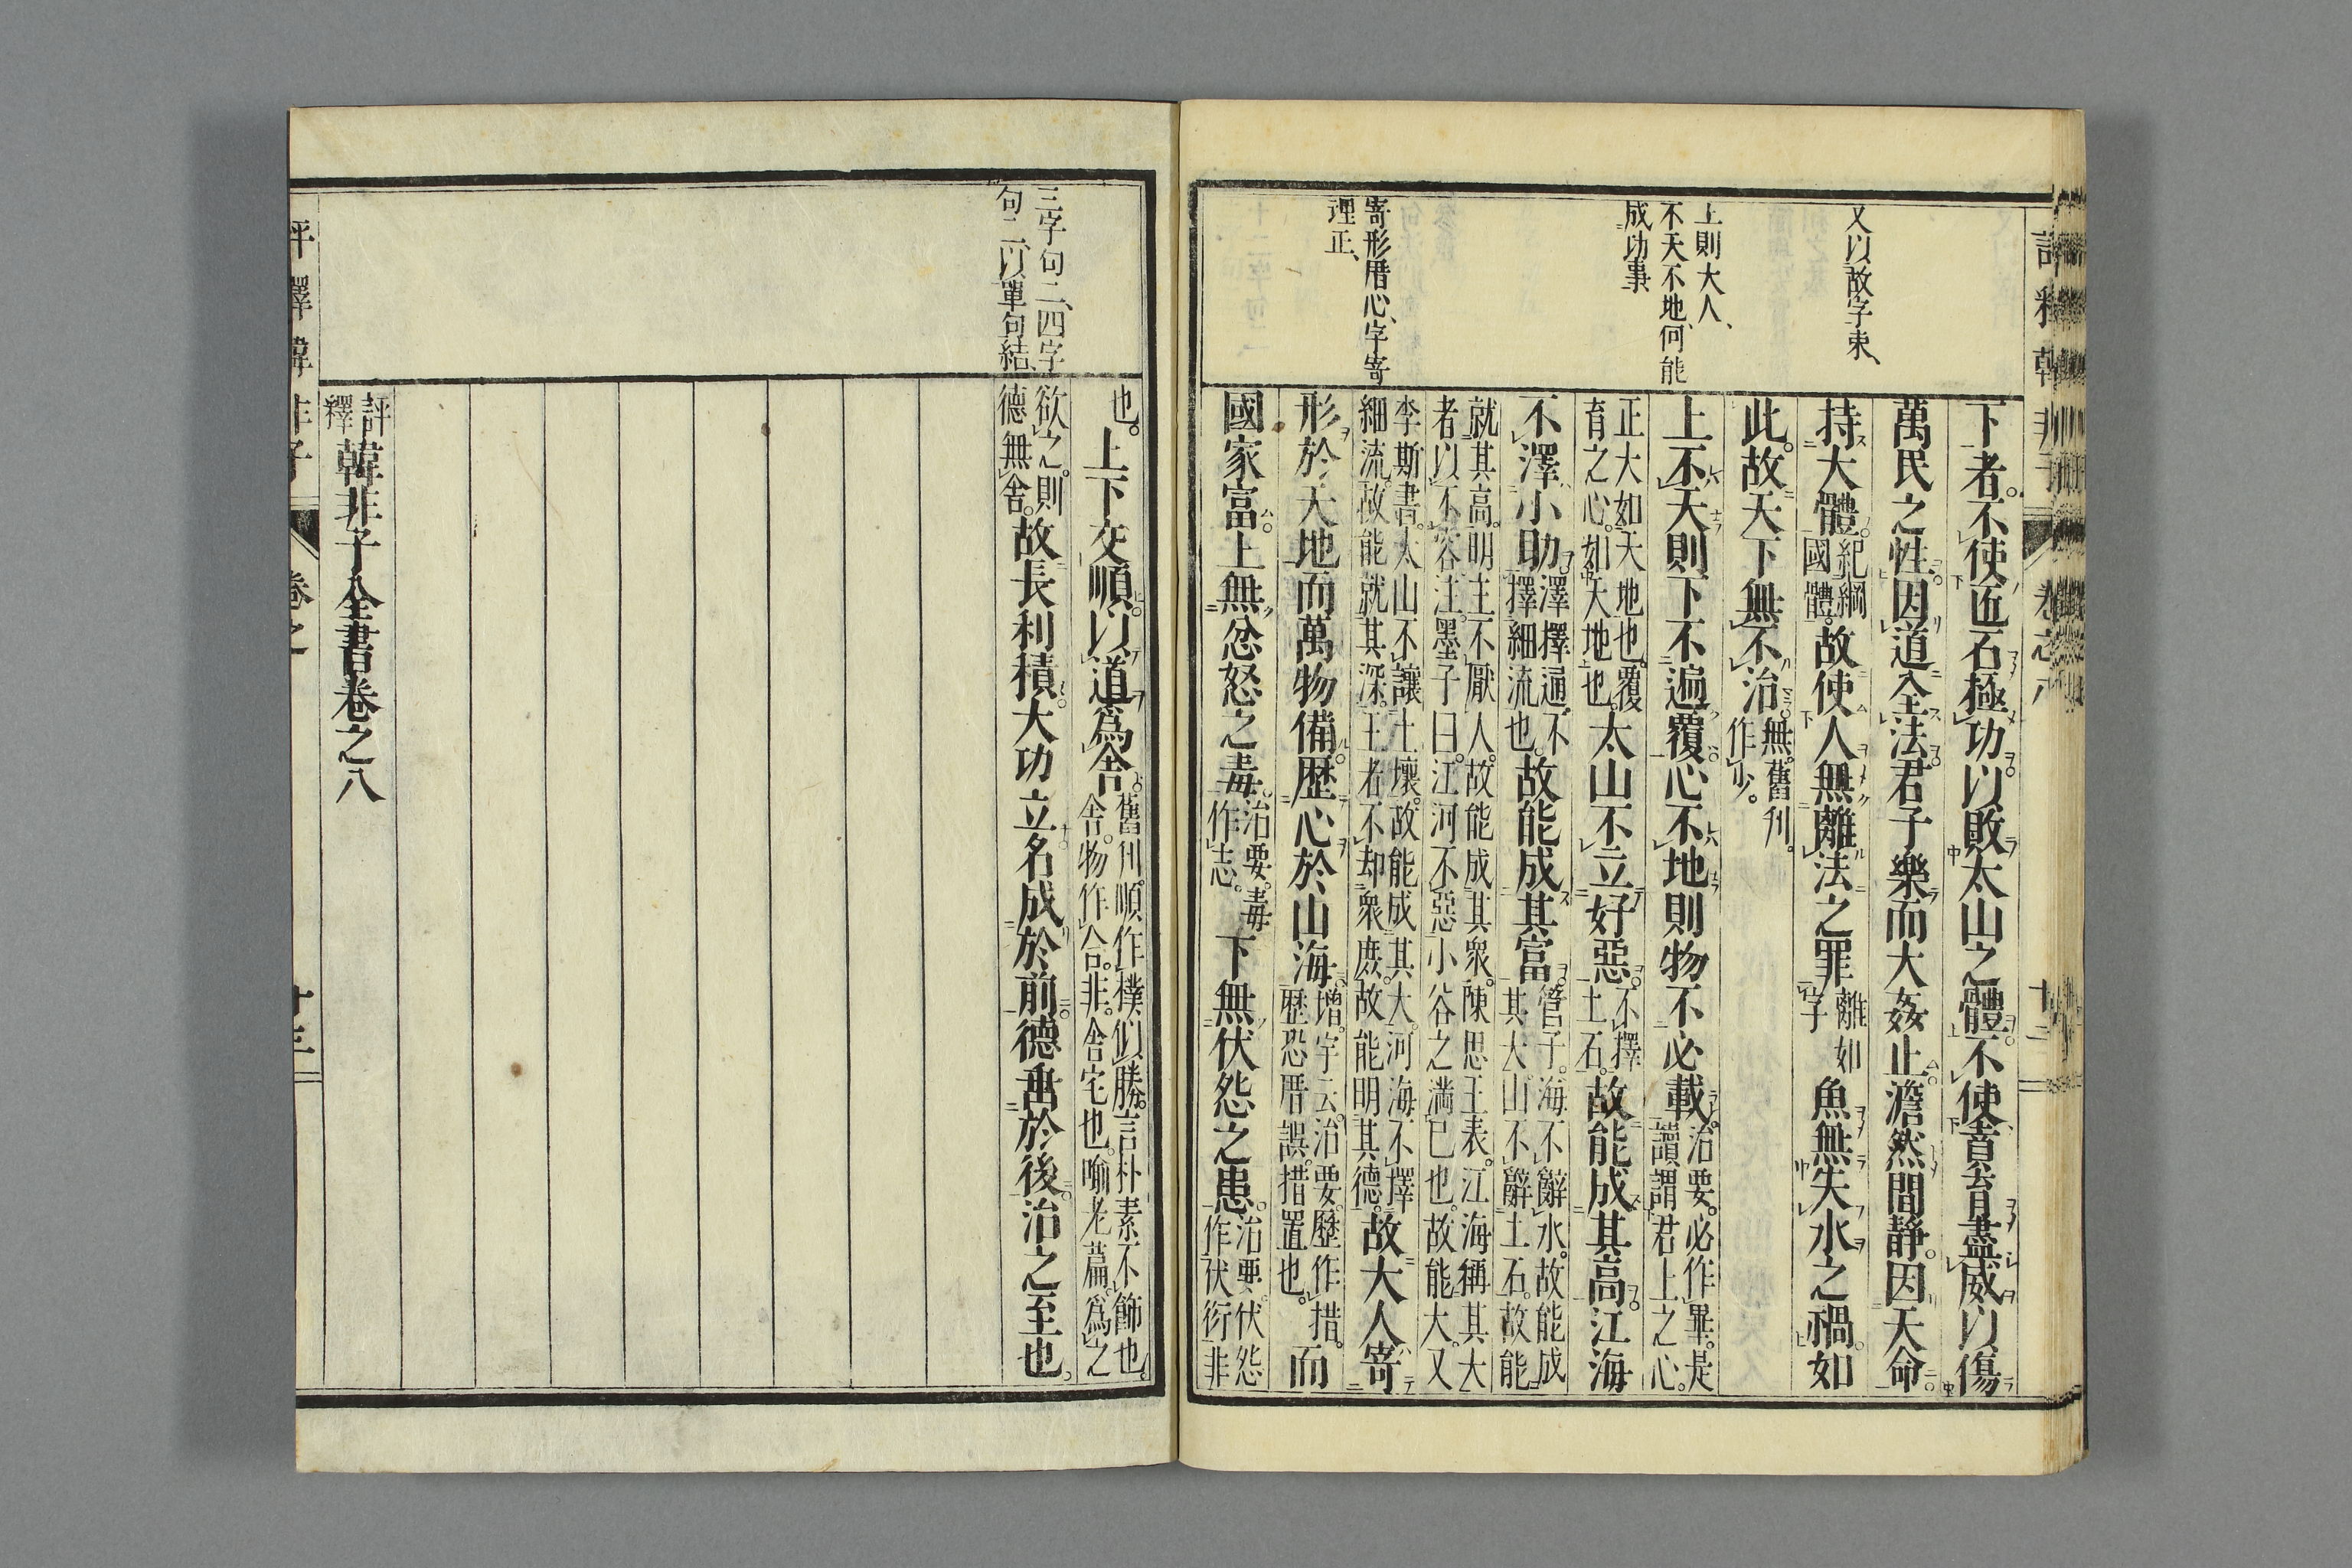 又以故字束、
上則大人、
不天不地、何能
成功事、
寄形曆心、字寄
理正、
下者。不使匠石極功以敗太山之體。不使賁育盡威以傷
萬民之性。因道全法。君子樂而大姦止。澹然閒靜。因天命
持大體。紀綱
國體。故使人無離法之罪離如
字魚無失水之禍。如
此。故天下無不治。無舊刋
作少。
上不天則下不遍覆。心不地則物不必載。治要。必作畢。是
讀謂君上之心。
正大如天地也。覆
育之心。如大地也。太山不立好惡。不擇
土石。故能成其高。江海
不澤小助。澤擇通。不
擇細流也。故能成其富。管子。海不辭水。故能成
其大山不辭土石。故能
就其高。明主不厭人。故能成其衆。陳思王表。江海稱其大
者以不容注。墨子曰。江河不惡小谷之滿已也。故能大。又
李斯書。太山不讓土壤。故能成其大。河海不擇
細流。故能就其深。王者不却衆庶。故能明其德。故大人寄
形於天地而萬物備。歴心於山海。增。宇云。治要。歷作措。
歴恐曆誤。措置也。而
國家富。上無忿怒之毒。治要。毒
作志。下無伏怨之患。治要。伏怨
作伏衍。非
三字句二、四字
句二、以單句結、
也。上下交順。以道爲舍。舊刋。順作樸。似勝。言朴素不飾也。
舍。物作合。非。舍宅也。喻老篇。爲之
欲之。則
德無舍。故長利積。大功立。名成於前。德垂於後。治之至也。
評
釋韓非子全書卷之八